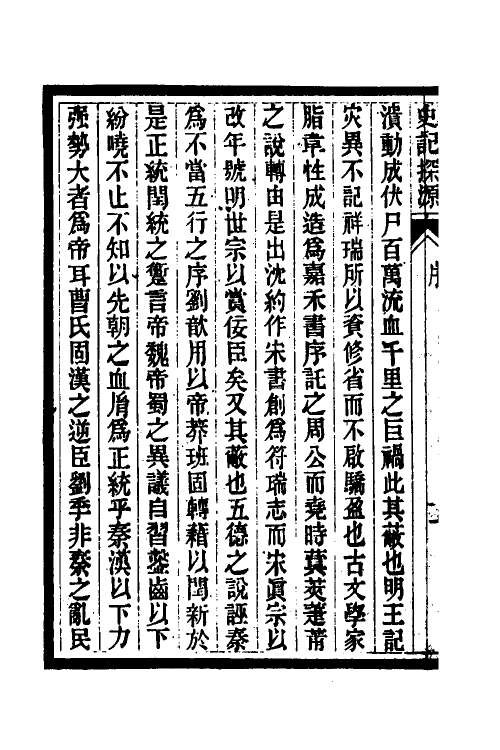 史記探源 序
潰動成伏尸百萬流血千里之巨禍此其蔽也明王記
災異不記祥瑞所以資修省而不啟驕盈也古文學家
脂韋性成造為嘉禾書序託之周公而堯時蓂莢萐莆
之說轉由是出沈約作宋書創為符瑞志而宋眞宗以
改年號明世宗以賞佞臣矣又其蔽也五德之說誣秦
為不當五行之序劉歆用以帝莽班固轉藉以閏新於
是正統閏統之躗言帝魏帝蜀之異議自習鑿齒以下
紛嘵不止不知以先朝之血胤為正統乎秦漢以下力
强勢大者為帝耳曹氏固漢之逆臣劉季非秦之亂民